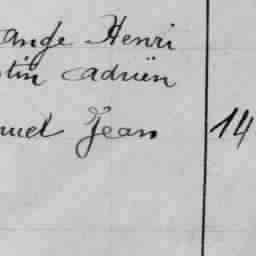 ange Henri
tin Adrien
muel Jean 14